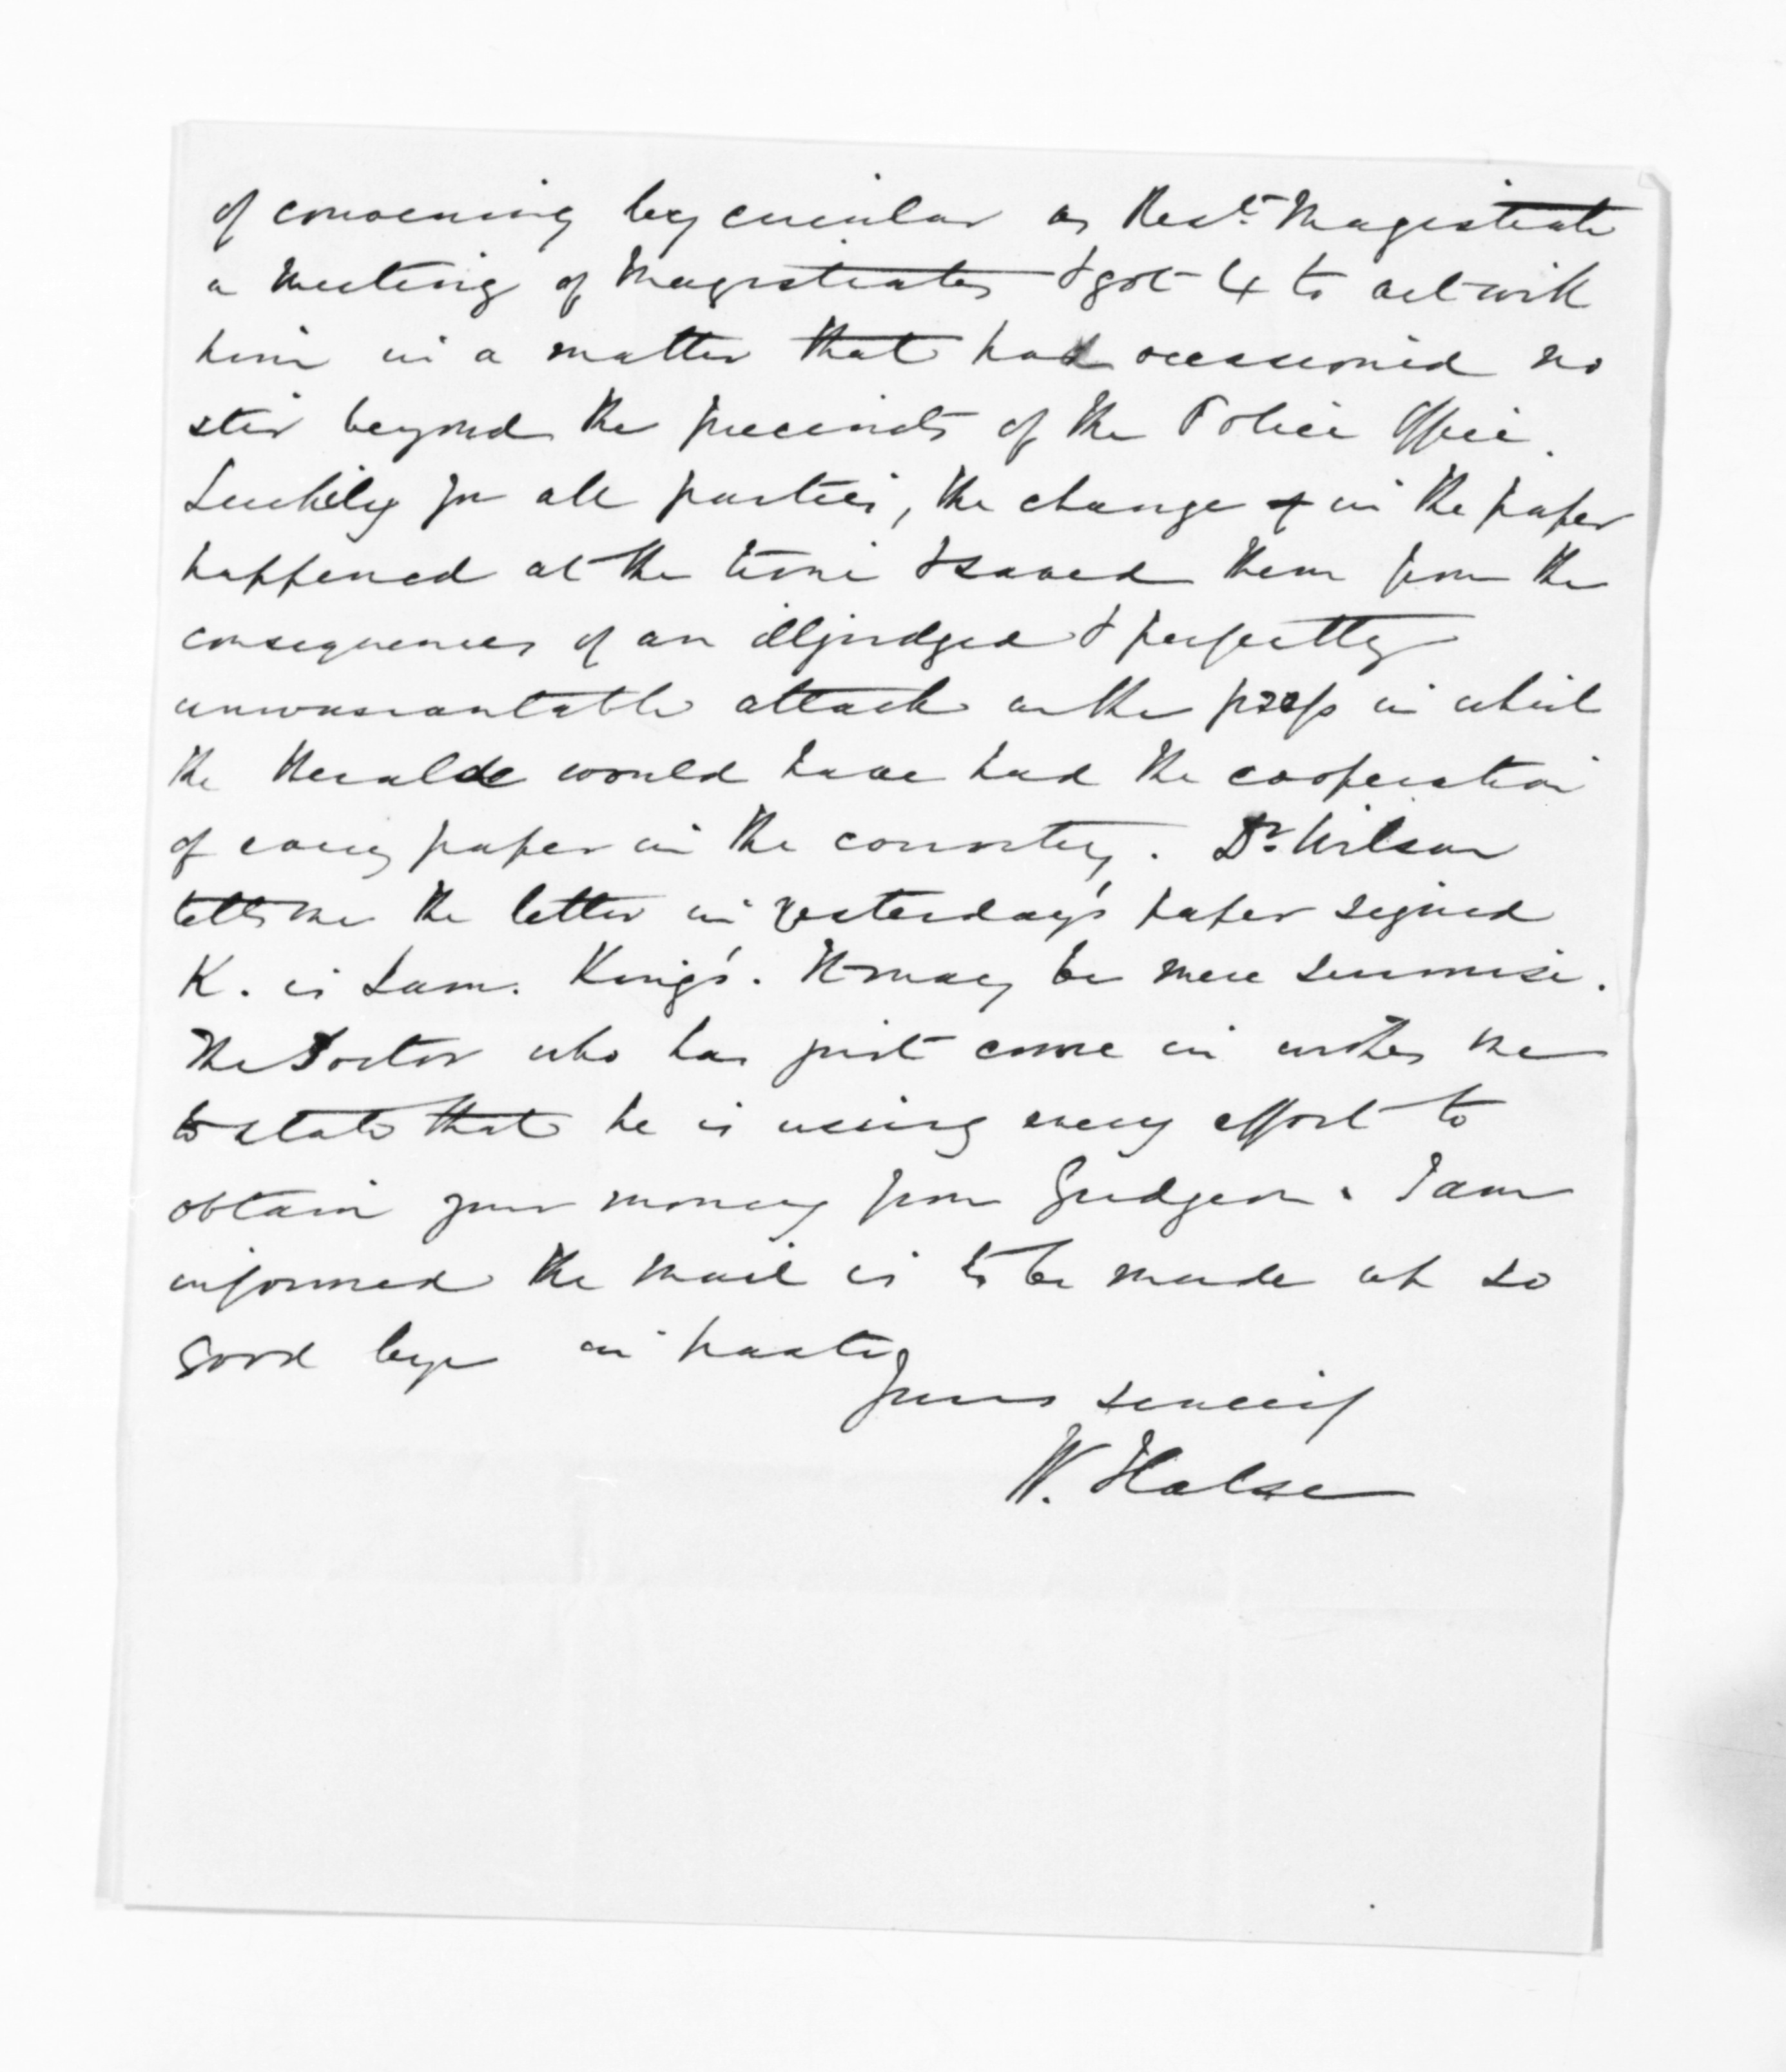 of convening by circular as Resdt. Magistrate
a meeting of Magistrates & got 4 to act with
him in a matter that had occasioned no
stir beyond the precincts of the Police Office.
Luckily for all parties, the change in the paper
happened at the time & saved them from the
consequences of an illjudged & perfectly
unwarrantable attack on the press in which
the Herald would have had the cooperation
of every paper in the country. Dr. Wilson
tells me the letter in yesterday's paper signed
K. is Sam. King's. It may be mere surmise.
The Doctor who has just come in wishes me
to state that he is using every effort to
obtain your money from Gudgeon. I am
informed the mail is to be made up so
good bye in haste
Yours sincerely
W. Halse